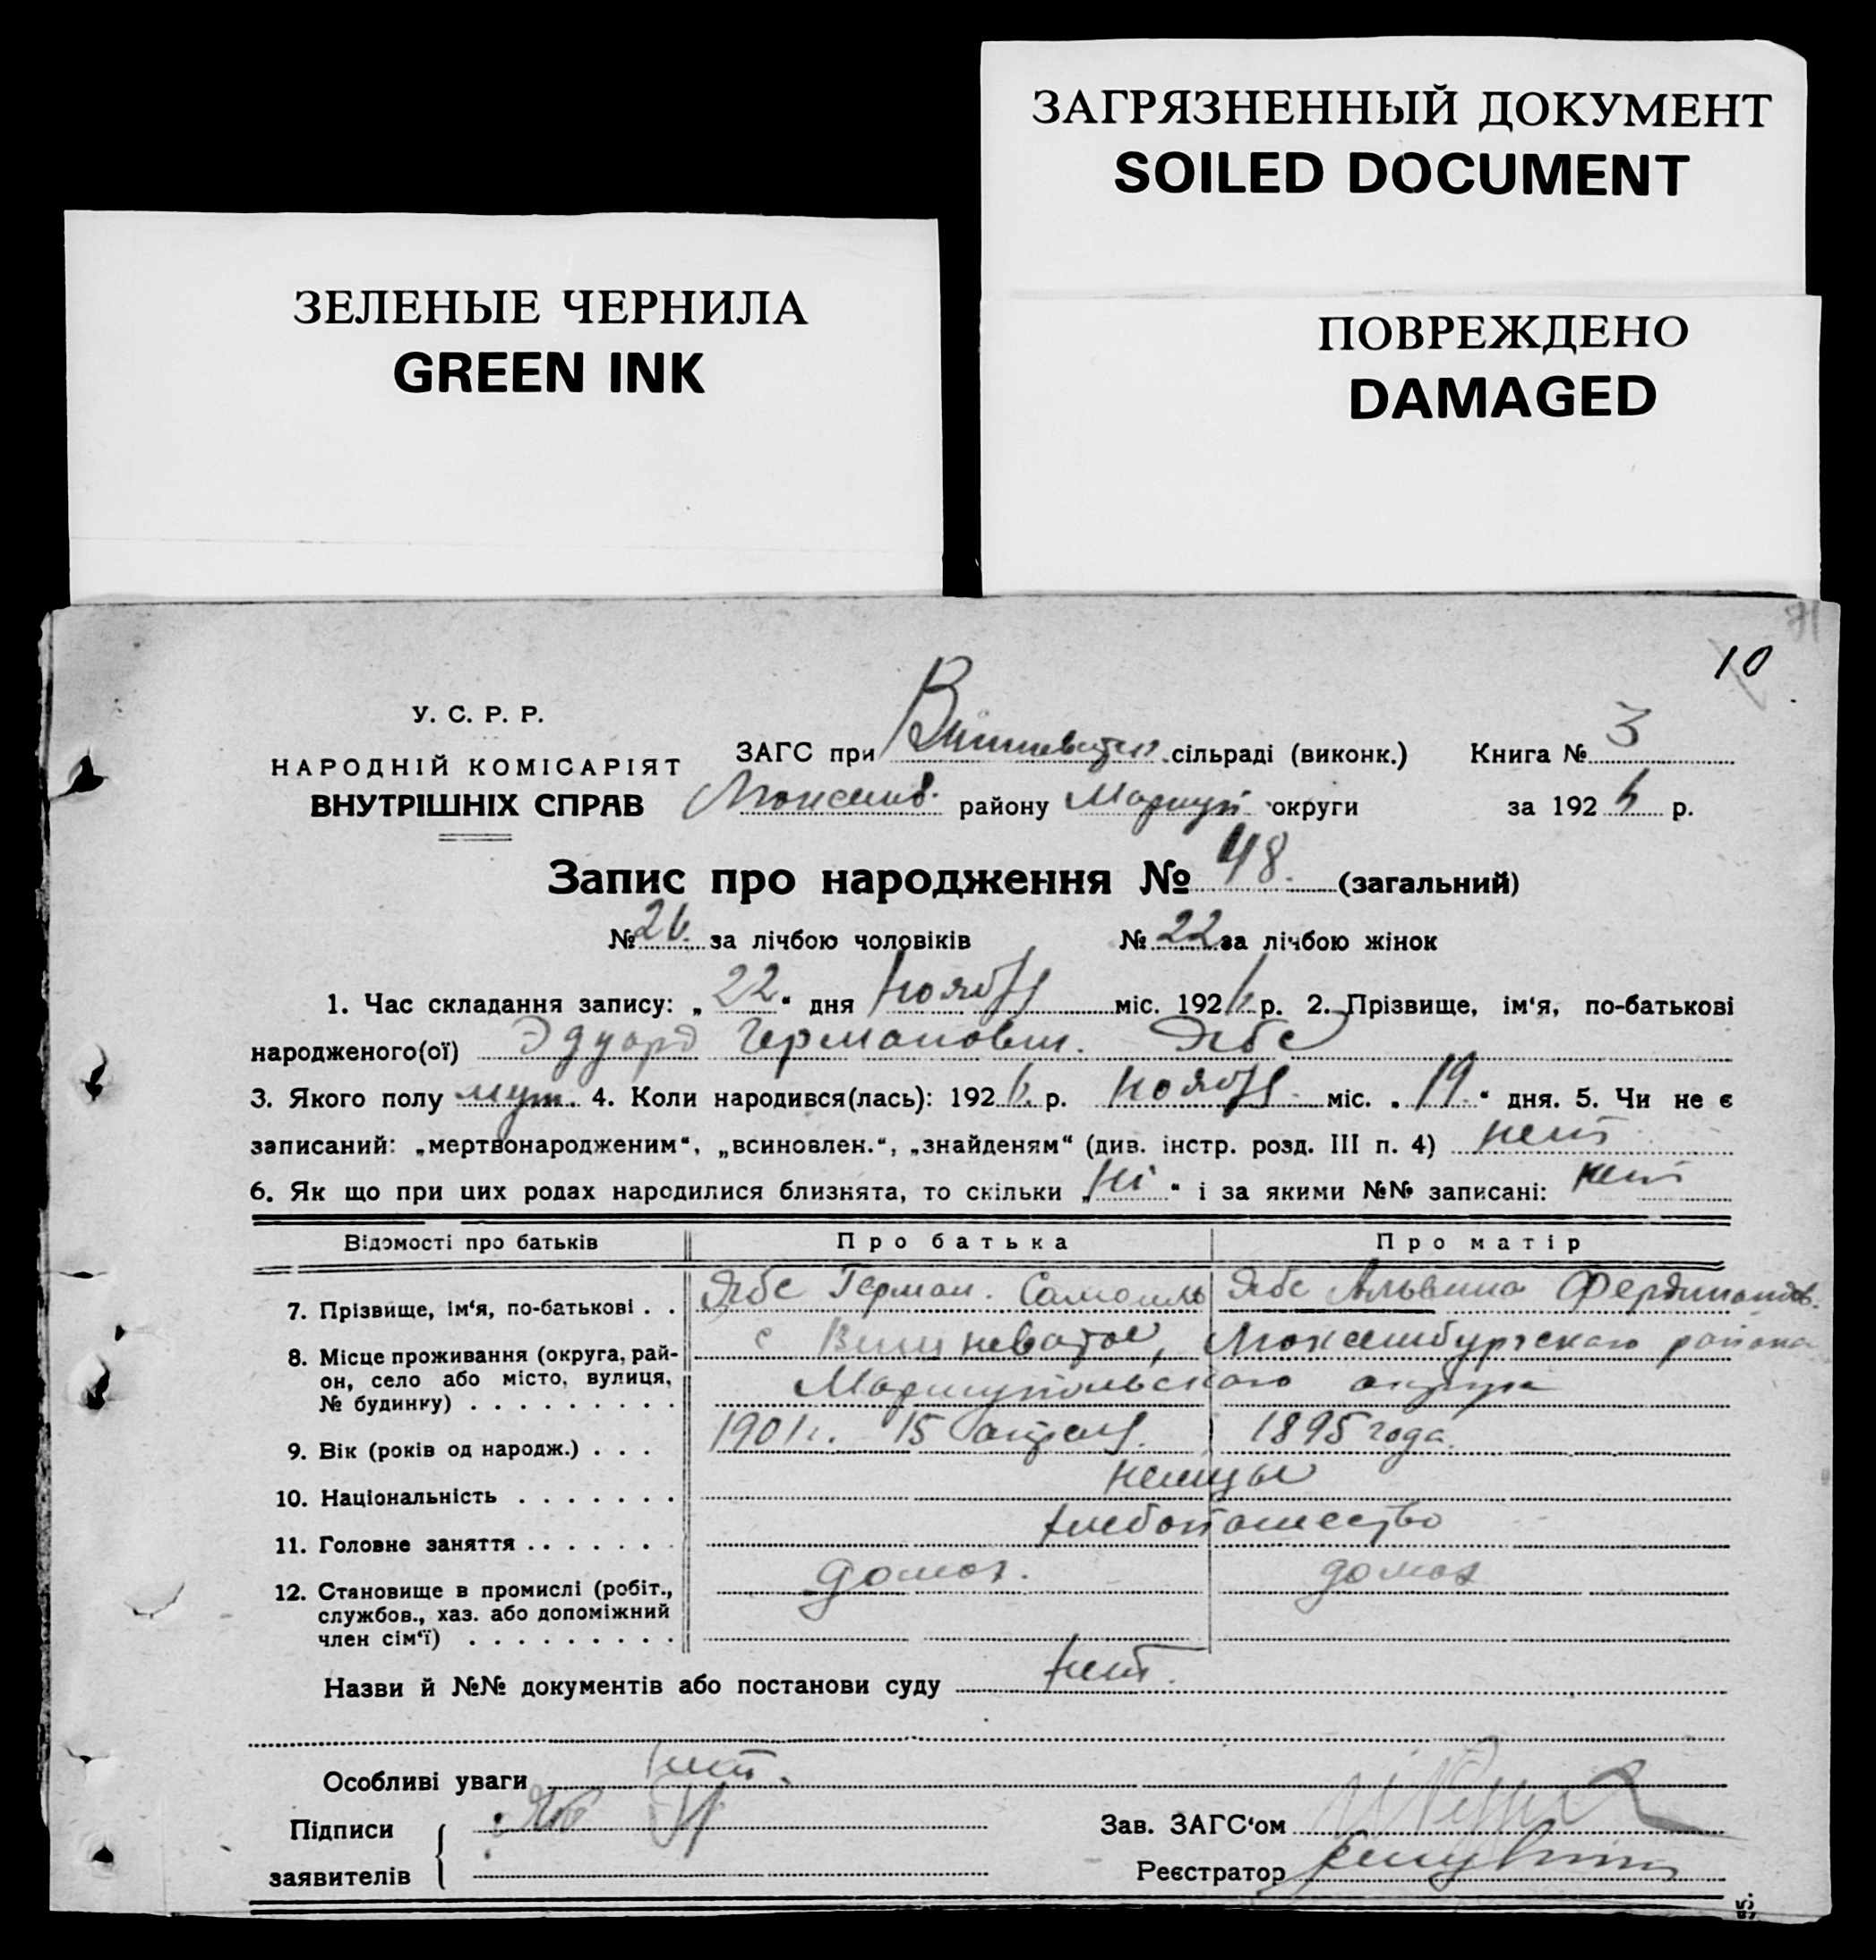 ЗАГРЯЗНЕННЫЙ ДОКУМЕНТ
SOILED DOCUMENT
ЗЕЛЕНЫЕ ЧЕРНИЛА
GREEN INK
ПОВРЕЖДЕНО
DAMAGED
10
У. С. Р. Р.
НАРОДНІЙ КОМІСАРІЯТ
ВНУТРІШНІХ СПРАВ
ЗАГС при сільраді (виконк.) Книга № 3
району Мариуп округи за 1926 р.
Запис про народження № 48. (загальний)
№ 26. за лічбою чоловіків № 22 за лічбою жінок
1. Час складання запису: „ 22 “ дня ноября міс. 1926 р. 2. Прізвище, ім‘я, по-батькові
народженого(ої) Эдуард Германович. Ябс
3. Якого полу муж. 4. Коли народився(лась): 1926 р. ноября міс. „ 19 “ дня. 5. Чи не є
записаний: „мертвонародженим“, „всиновлен.“, „знайденям“ (див. інстр. розд. III п. 4) нет
6. Як що при цих родах народилися близнята, то скільки „ “ і за якими №№ записані: нет
Відомості про батьків Про батька Про матір
7. Прізвище, ім‘я, по-батькові . . Ябс Герман. Самоиль Ябс Альвина Фердинандов.
8. Місце проживання (округа, рай-
он, село або місто, вулиця,
№ будинку) . . . . . . . . .
с Вишневатое, района
Мариупольского округа
9. Вік (років од народж.) . . . 1901 г. 15 апреля. 1895 года.
10. Національність . . . . . . . немцы
11. Головне заняття . . . . . . . хлебопашество
12. Становище в промислі (робіт.,
службов., хаз. або допоміжний
член сім‘ї) . . . . . . . . .
домох. домох
Назви й №№ документів або постанови суду нет.
Особливі уваги нет.
Підписи
заявителів
Зав. ЗАГС‘ом
Реєстратор